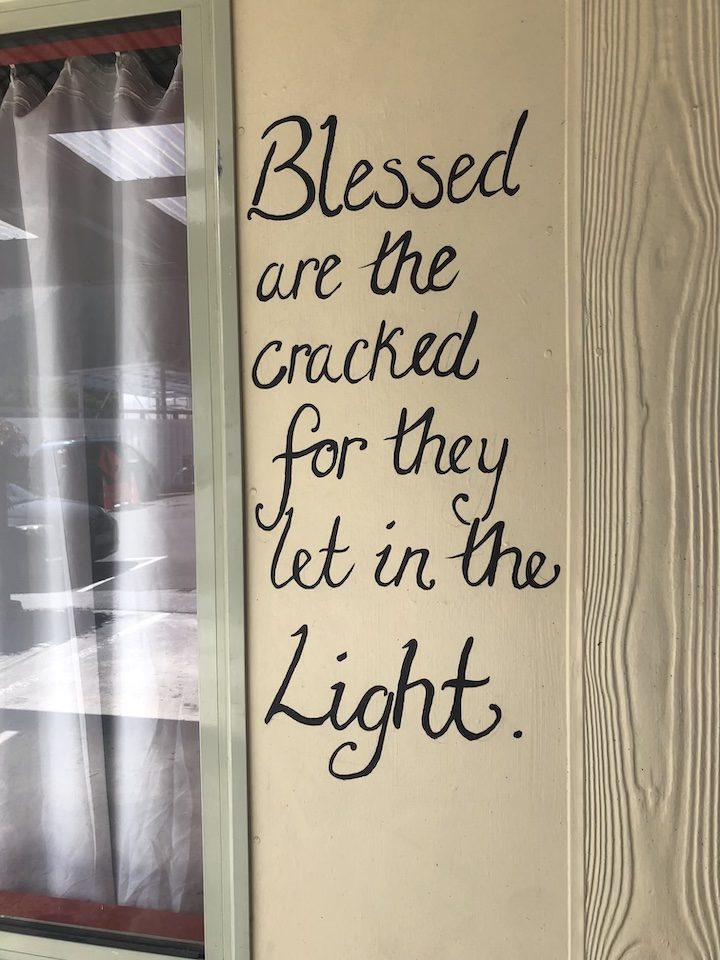 Blessed
are the
cracked
for they
let in the
Light.